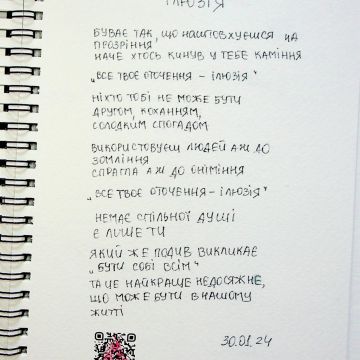 ІЛЮЗІЯ
БУВАЄ ТАК, ЩО НАШТОВХУЄШСЯ НА
ПРОЗРІННЯ
НАЧЕ ХТОСЬ КИНУВ У ТЕБЕ КАМІННЯ
„ВСЕ ТВОЄ ОТОЧЕННЯ - ІЛЮЗІЯ"
НІХТО ТОБІ НЕ МОЖЕ БУТИ
ДРУГОМ, КОХАННЯМ,
СОЛОДКИМ СПОГАДОМ
ВИКОРИСТОВУЄШ ЛЮДЕЙ АЖ ДО
ЗОМЛІННЯ
СПРАГЛА АЖ ДО ОНІМІННЯ
„ВСЕ ТВОЄ ОТОЧЕННЯ - ІЛЮЗІЯ"
НЕМАЄ СПІЛЬНОЇ ДУШІ
Є ЛИШЕ ТИ
ЯКИЙ ЖЕ ПОДИВ ВИКЛИКАЄ
„БУТИ СОБІ ВСІМ"
ТА ЦЕ НАЙКРАЩЕ НЕДОСЯЖНЕ,
ЩО МОЖЕ БУТИ В НАШОМУ
ЖИТТІ
30.01.24